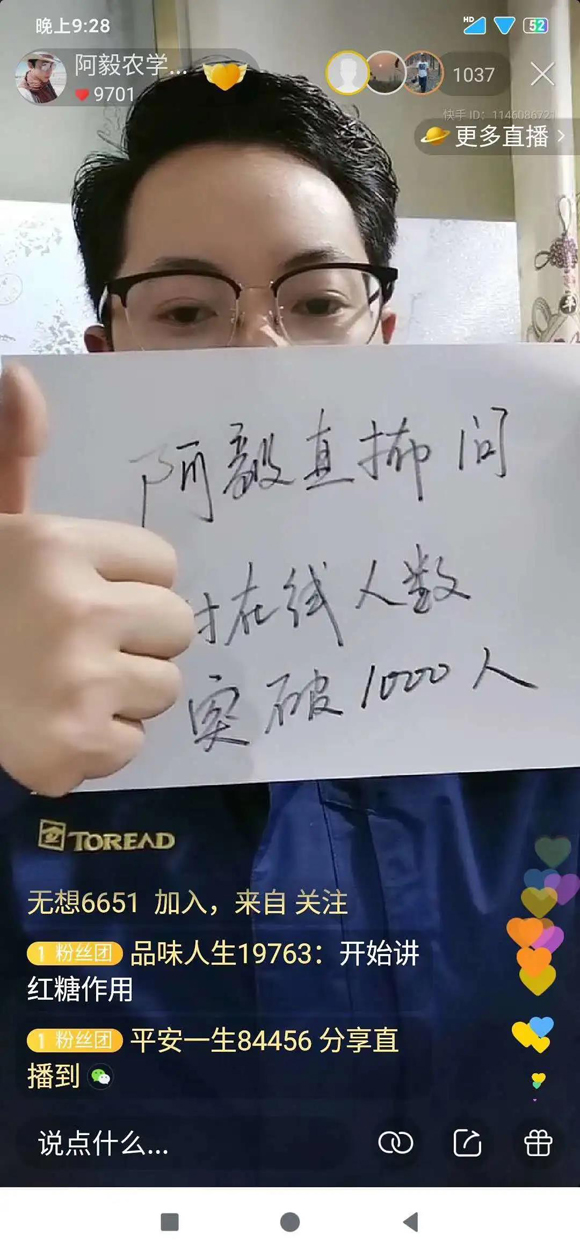 晚上9:28
HD
52
阿毅农学...
9701
1037
快手 ID：114608672
更多直播
阿毅直播间
在线人数
突破1000人
TOREAD
无想6651 加入，来自 关注
1 粉丝团 品味人生19763：开始讲
红糖作用
1 粉丝团 平安一生84456 分享直
播到
说点什么...